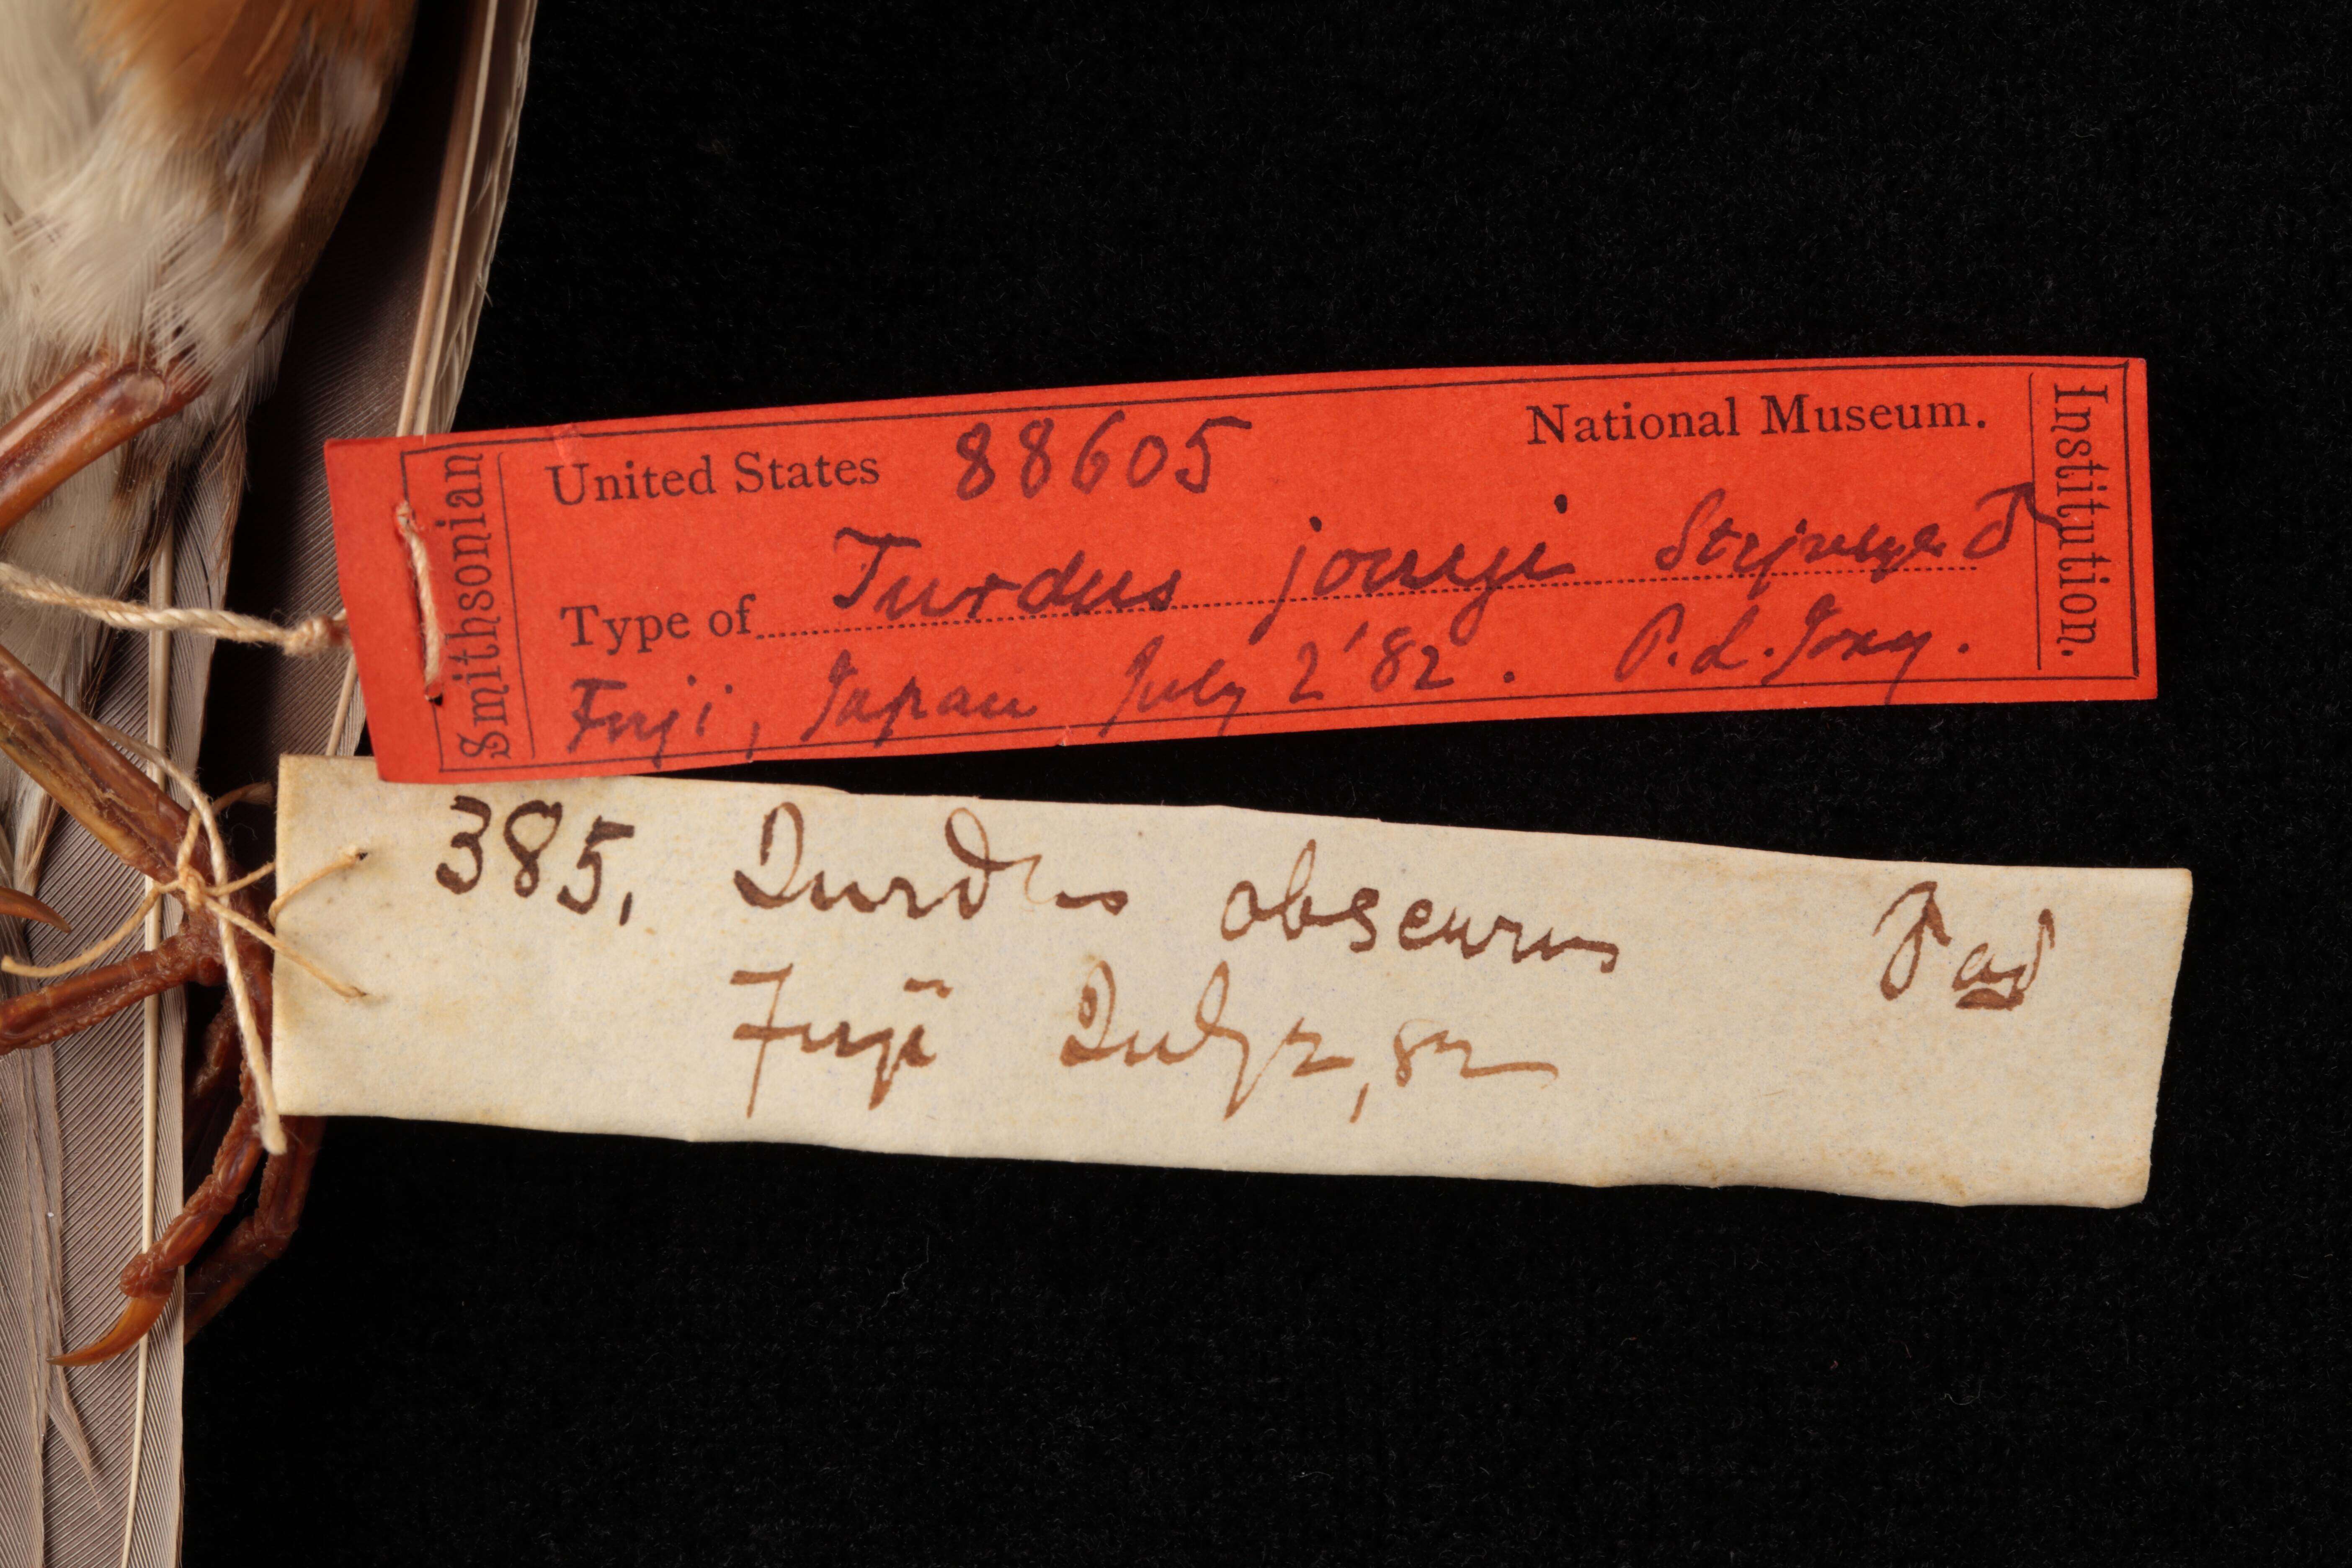 Smithsonian
United States 88605 National Museum.
Type of Turdus jouyi Stejneger ♂
Fuji, Japan July 2 '82. P. L. Jouy.
Institution.
385, Turdus obscurus ♂ ad
Fuji July 2, 82